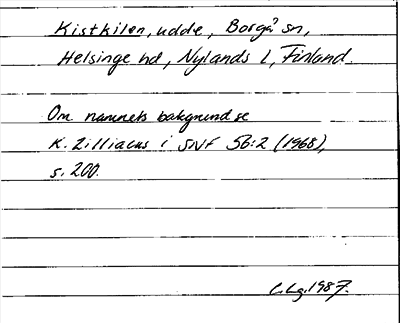 Kistkilen, udde, Borgå sn,
Helsinge hd, Nylands l, Finland.
Om namnets bakgrund se
K. Zilliacus i SNF 56:2 (1968),
s. 200.
C.Lg. 1987.